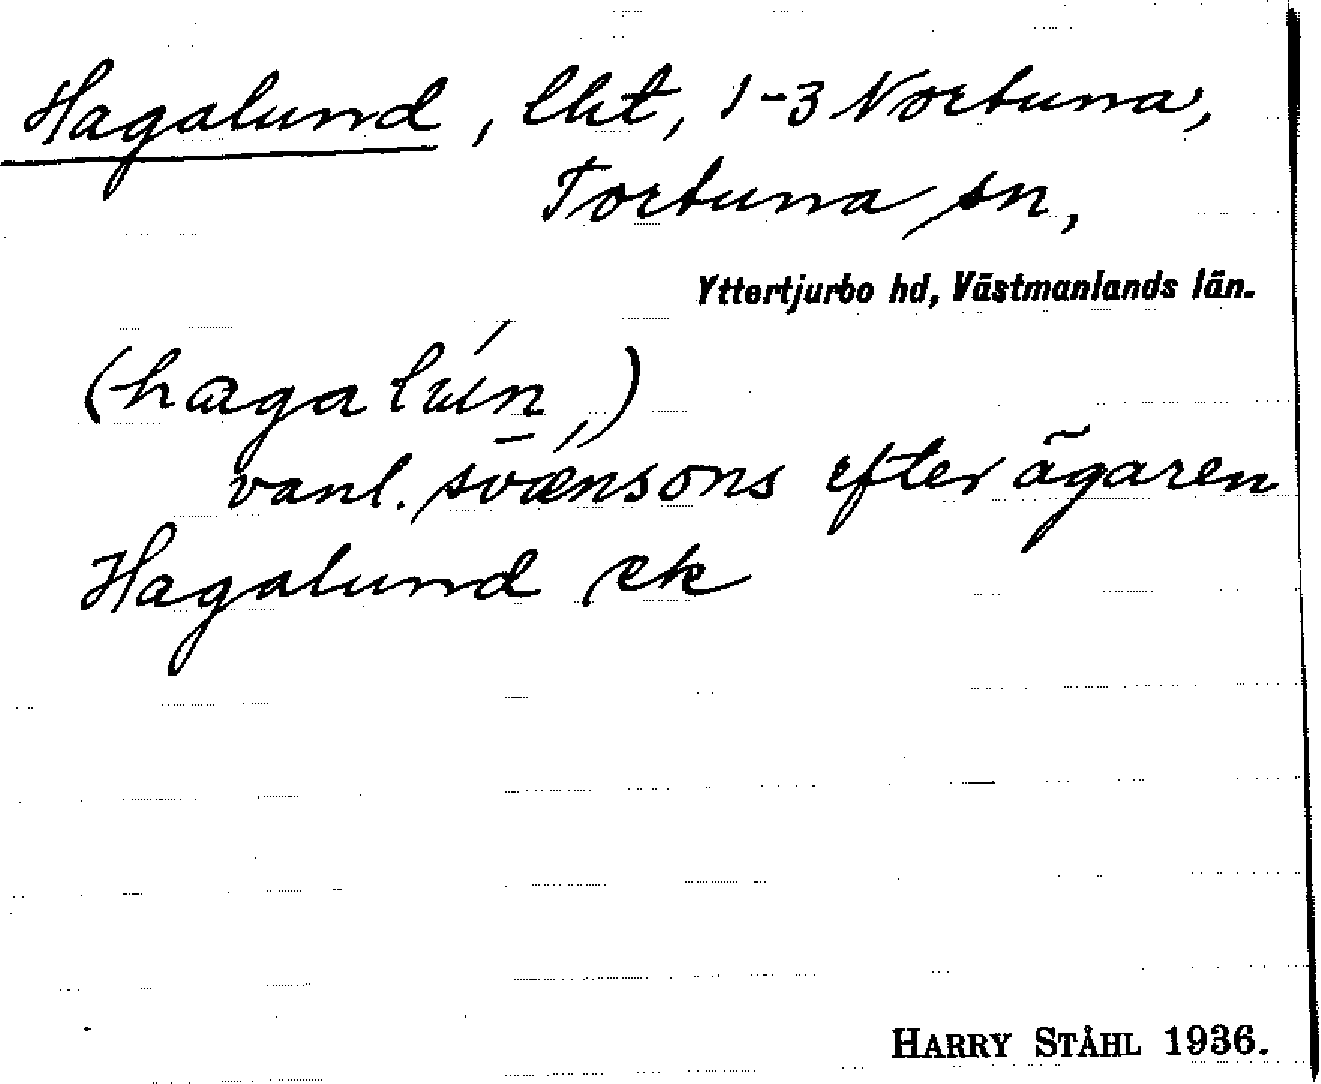 Hagalund, lht, 1-3 Nortuna,
Tortuna sn,
Yttertjurbo hd, Västmanlands län.
(hagalun,)
vanl. svænsons efter ägaren
Hagalund ek
HARRY STÅHL 1936.